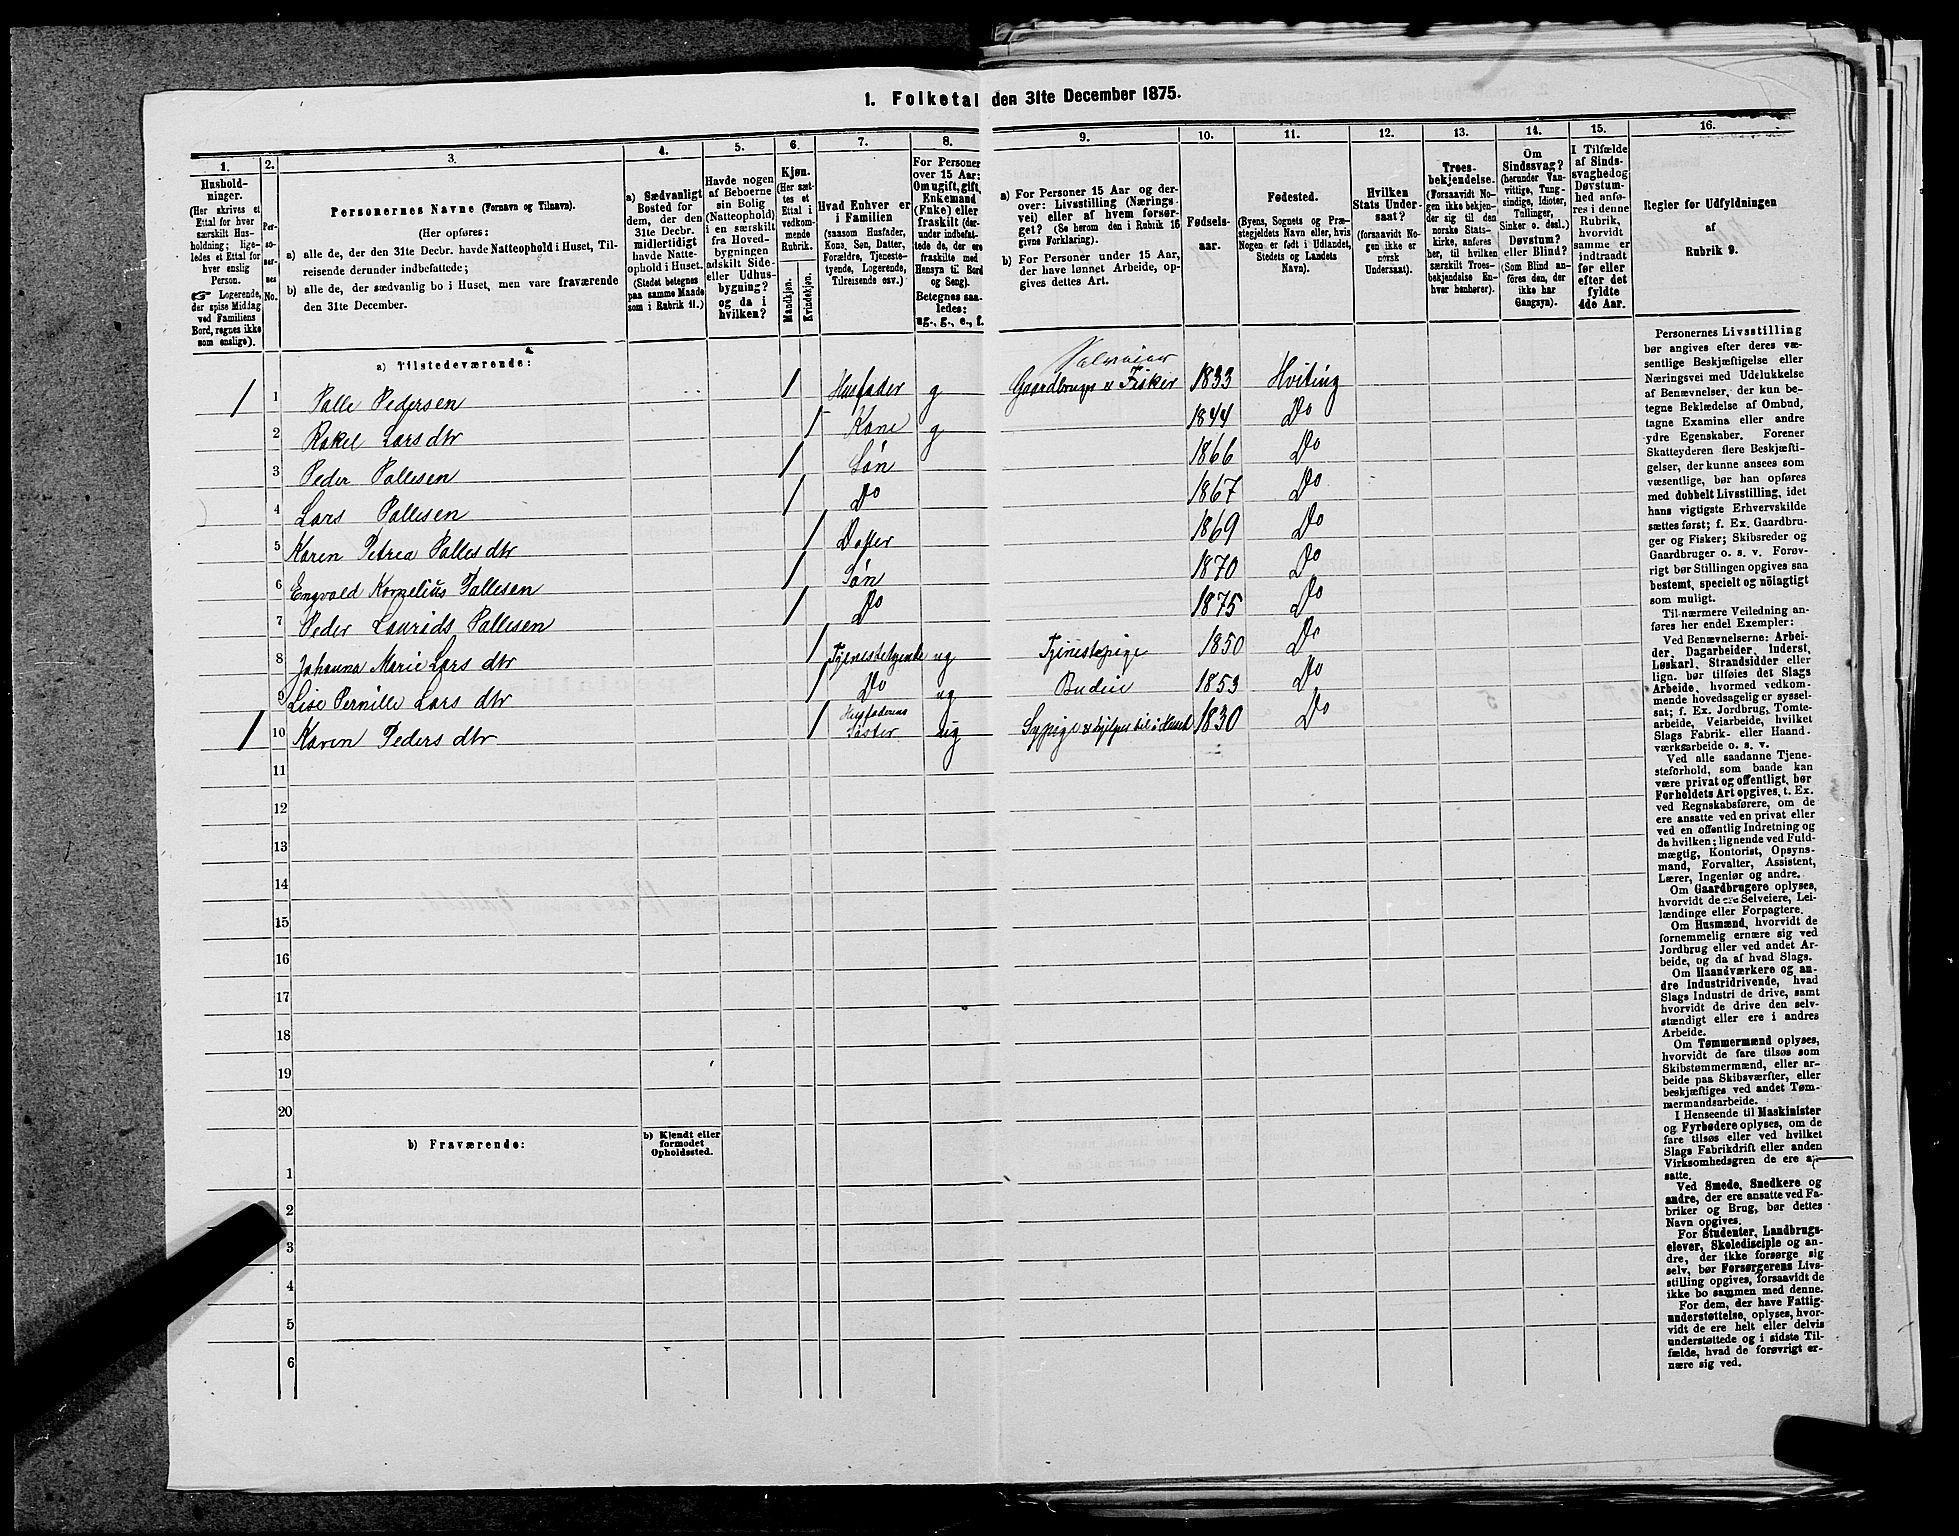 1. Folketal den 31te December 1875.
1.
2.
3.
4.
5.
6.
7.
8.
9.
10.
11.
12.
13.
14.
15.
16.
Hushold-
ninger.
(Her skrives et
Ettal for hver
særskilt Hus-
holdning; lige-
ledes et Ettal for
hver enslig
Person.
☞ Logerende,
der spise Middag
ved Familiens
Bord, regnes ikke
som enslige).
Per-
so-
ner-
nes
No.
Personernes Navne (Fornavn og Tilnavn).
(Her opføres:
a) alle de, der den 31te Decbr. havde Natteophold i Huset, Til-
reisende derunder indbefattede;
b) alle de, der sædvanlig bo i Huset, men vare fraværende
den 31te December.
a) Sædvanligt
Bosted for
dem, der den
31te Decbr.
midlertidigt
havde Natte-
ophold i Huset.
(Stedet betegnes
paa samme Maade
som i Rubrik 11.)
Havde nogen
af Beboerne
sin Bolig
(Natteophold)
i en særskilt
fra Hoved-
bygningen
adskilt Side-
eller Udhus-
bygning?
og da i
hvilken?
Kjøn.
(Her sæt-
tes et
Ettal i
vedkom-
mende
Rubrik.
Mandkjøn.
Kvindekjøn.
Hvad Enhver er
i Familien
(saasom Husfader,
Kone, Søn, Datter,
Forældre, Tjeneste-
tyende, Logerende,
Tilreisende osv.)
For Personer
over 15 Aar:
Om ugift, gift,
Enkemand
(Enke) eller
fraskilt (der-
under indbefat-
tede de, der ere
fraskilte med
Hensyn til Bord
og Seng).
Betegnes saa-
ledes:
ug., g., e., f.
a) For Personer 15 Aar og der-
over: Livsstilling (Nærings-
vei) eller af hvem forsør-
get? (Se herom den i Rubrik 16
givne Forklaring).
b) For Personer under 15 Aar,
der have lønnet Arbeide, op-
gives dettes Art.
Fødsels-
aar.
Fødested.
(Byens, Sognets og Præ-
stegjeldets Navn eller, hvis
Nogen er født i Udlandet,
Stedets og Landets
Navn).
Hvilken
Stats Under-
saat?
(forsaavidt No-
gen ikke er
norsk
Undersaat).
Troes-
bekjendelse.
(Forsaavidt No-
gen ikke bekjen-
der sig til den
norske Stats-
kirke, anføres
her, til hvilken
særskilt Troes-
bekjendelse En-
hver henhører).
Om
Sindssvag?
(herunder Van-
vittige, Tung-
sindige, Idioter,
Tullinger,
Sinker o. desl.)
Døvstum?
eller Blind?
(Som Blind an-
føres den, der
ikke har
Gangsyn).
I Tilfælde
af Sinds-
svaghed og
Døvstum-
hed anfø-
res i denne
Rubrik,
hvorvidt
samme er
indtraadt
før eller
efter det
fyldte
4de Aar.
Regler for Udfyldningen
af
Rubrik 9.
a) Tilstedeværende:
Selveier
1 1 Palle Pedersen 1 Husfader g Gaardbruger & Fisker 1833 Hviting
2 Rakel Lars dtr 1 Kone g 1844 Do
3 Peder Pallesen 1 Søn 1866 Do
4 Lars Pallesen 1 Do 1867 Do
5 Karen Petrea Palles dtr 1 Datter 1869 Do
6 Engvald Kornelius Pallesen 1 Søn 1870 Do
7 Peder Laurids Pallesen 1 Do 1875 Do
8 Johanna Marie Lars dtr 1 Tjenestetyende ug Tjenestepige 1850 Do
9 Lise Pernille Lars dtr 1 Do ug Budeie 1853 Do
1 10 Karen Peders dtr 1 Husfaderens Søster ug Sypige & hjelper til i Huset 1830 Do
11
12
13
14
15
16
17
18
19
20
b) Fraværende:
b) Kjendt eller
formodet
Opholdssted.
1
2
3
4
5
6
Personernes Livsstilling
bør angives efter deres væ-
sentlige Beskjæftigelse eller
Næringsvei med Udelukkelse
af Benævnelser, der kun be-
tegne Beklædelse af Ombud,
tagne Examina eller andre
ydre Egenskaber. Forener
Skatteyderen flere Beskjæfti-
gelser, der kunne ansees som
væsentlige, bør han opføres
med dobbelt Livsstilling, idet
hans vigtigste Erhvervskilde
sættes først; f. Ex. Gaardbru-
ger og Fisker; Skibsreder og
Gaardbruger o. s. v. Forøv-
rigt bør Stillingen opgives saa
bestemt, specielt og nöiagtigt
som muligt.
Til nærmere Veiledning an-
føres her endel Exempler:
Ved Benævnelserne: Arbei-
der, Dagarbeider, Inderst,
Løskarl, Strandsidder eller
lign. bør tilføies det Slags
Arbeide, hvormed vedkom-
mende hovedsagelig er syssel-
sat; f. Ex. Jordbrug, Tomte-
arbeide, Veiarbeide, hvilket
Slags Fabrik- eller Haand-
værksarbeide o. s. v.
Ved alle saadanne Tjene-
steforhold, som baade kan
være privat og offentligt, bør
Forholdets Art opgives, t. Ex.
ved Regnskabsførere, om de
ere ansatte ved en privat eller
ved en offentlig Indretning og
da hvilken; lignende ved Fuld-
mægtig, Kontorist, Opsyns-
mand, Forvalter, Assistent,
Lærer, Ingeniør og andre.
Om Gaardbrugere oplyses,
hvorvidt de ere Selveiere, Lei-
lændinge eller Forpagtere.
Om Husmænd, hvorvidt de
fornemmelig ernære sig ved
Jordbrug eller ved andet Ar-
beide, og da af hvad Slags.
Om Haandværkere og an-
dre Industridrivende, hvad
Slags Industri de drive, samt
hvorvidt de drive den selv-
stændigt eller ere i andres
Arbeide.
Om Tømmermænd oplyses,
hvorvidt de fare tilsøs som
Skibstømmermænd, eller ar-
beide paa Skibsværfter, eller
beskjæftiges ved andet Tøm-
mermandsarbeide.
I Henseende til Maskinister
og Fyrbødere oplyses, om de
fare tilsøs eller ved hvilket
Slags Fabrikdrift eller anden
Virksomhedsgren de ere an-
satte.
Ved Smede, Snedkere og
andre, der ere ansatte ved Fa-
briker og Brug, bør dettes
Navn opgives.
For Studenter, Landbrugs-
elever, Skoledisciple og an-
dre, der ikke forsørge sig
selv, bør Forsørgerens Livs-
stilling opgives, forsaavidt de
ikke bo sammen med denne.
For dem, der have Fattig-
understøttelse, oplyses, hvor-
vidt de ere helt eller delvis
understøttede og i sidste Til-
fælde, hvad de forøvrigt er-
nære sig ved.